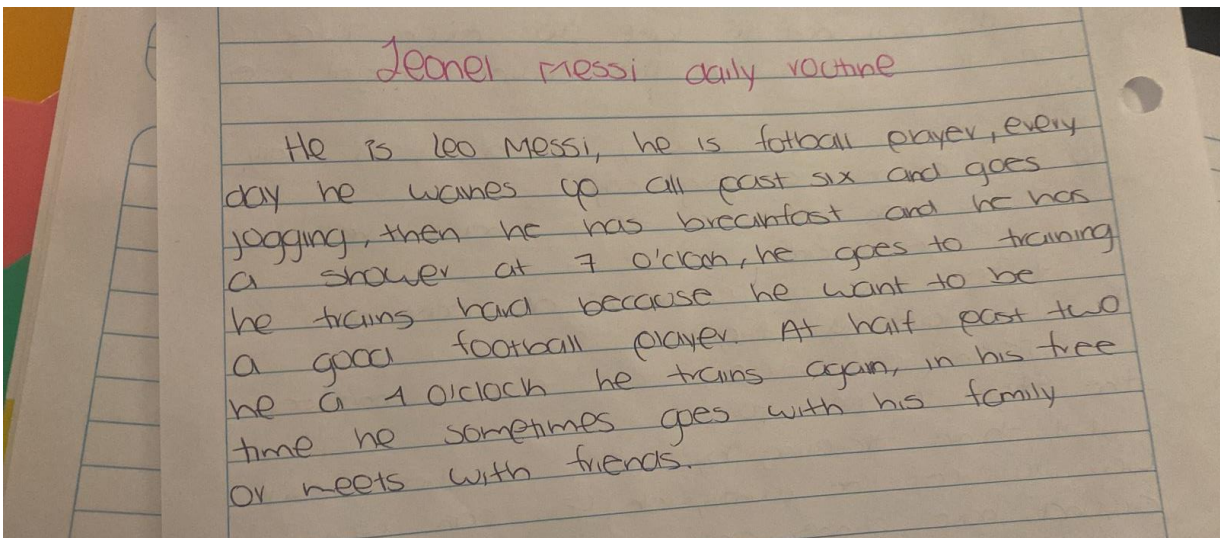 Leonel Messi daily routine
He is Leo Messi, he is fotball player, every
day he wakes up all past six and goes
jogging, then he has breakfast and he has
a shower at 7 o'clock, he goes to training
he trains hard because he want to be
a good football player. At half past two
he a 4 o'clock he trains again, in his free
time he sometimes goes with his family
or meets with friends.